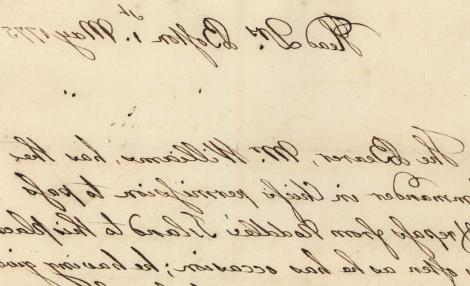 Head Qrs. Boston 1.st May 1775
The Bearer, Mr. Williams, has the
mmander in Chiefs permission to pass
& repass from Noddles Island to this place
s often as he has occasion; he having giv